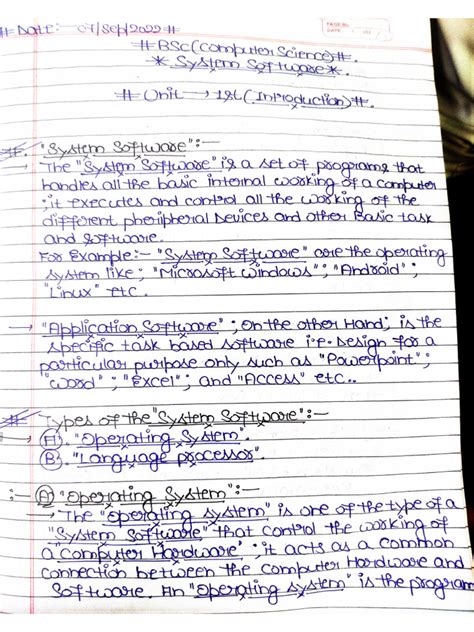 # Date:- 07/Sep/2022 #
PAGE No.
DATE
# BSc (Computer Science) #.
* System Software *.
# Unit → 1st (Introduction) #.
#. "System Software":-
→ The "System Software" is a set of programs that
handles all the basic internal working of a computer
; it executes and control all the working of the
different pheripheral Devices and other Basic task
and software.
For Example:- "System Software" are the operating
system like; "Microsoft Windows"; "Android";
"Linux" etc.
→ "Application Software"; on the other Hand; is the
specific task based software i.e. Design for a
particular purpose only such as "Powerpoint";
"Word"; "Excel"; and "Access" etc..
# Types of the "System Software":-
→ (A). "Operating System".
(B). "Language processor".
:- (A) "Operating System":-
→ The "operating system" is one of the type of a
"System Software" that control the working of
a "Computer Hardware"; it acts as a common
connection between the Computer Hardware and
Software. An "Operating system" is the program